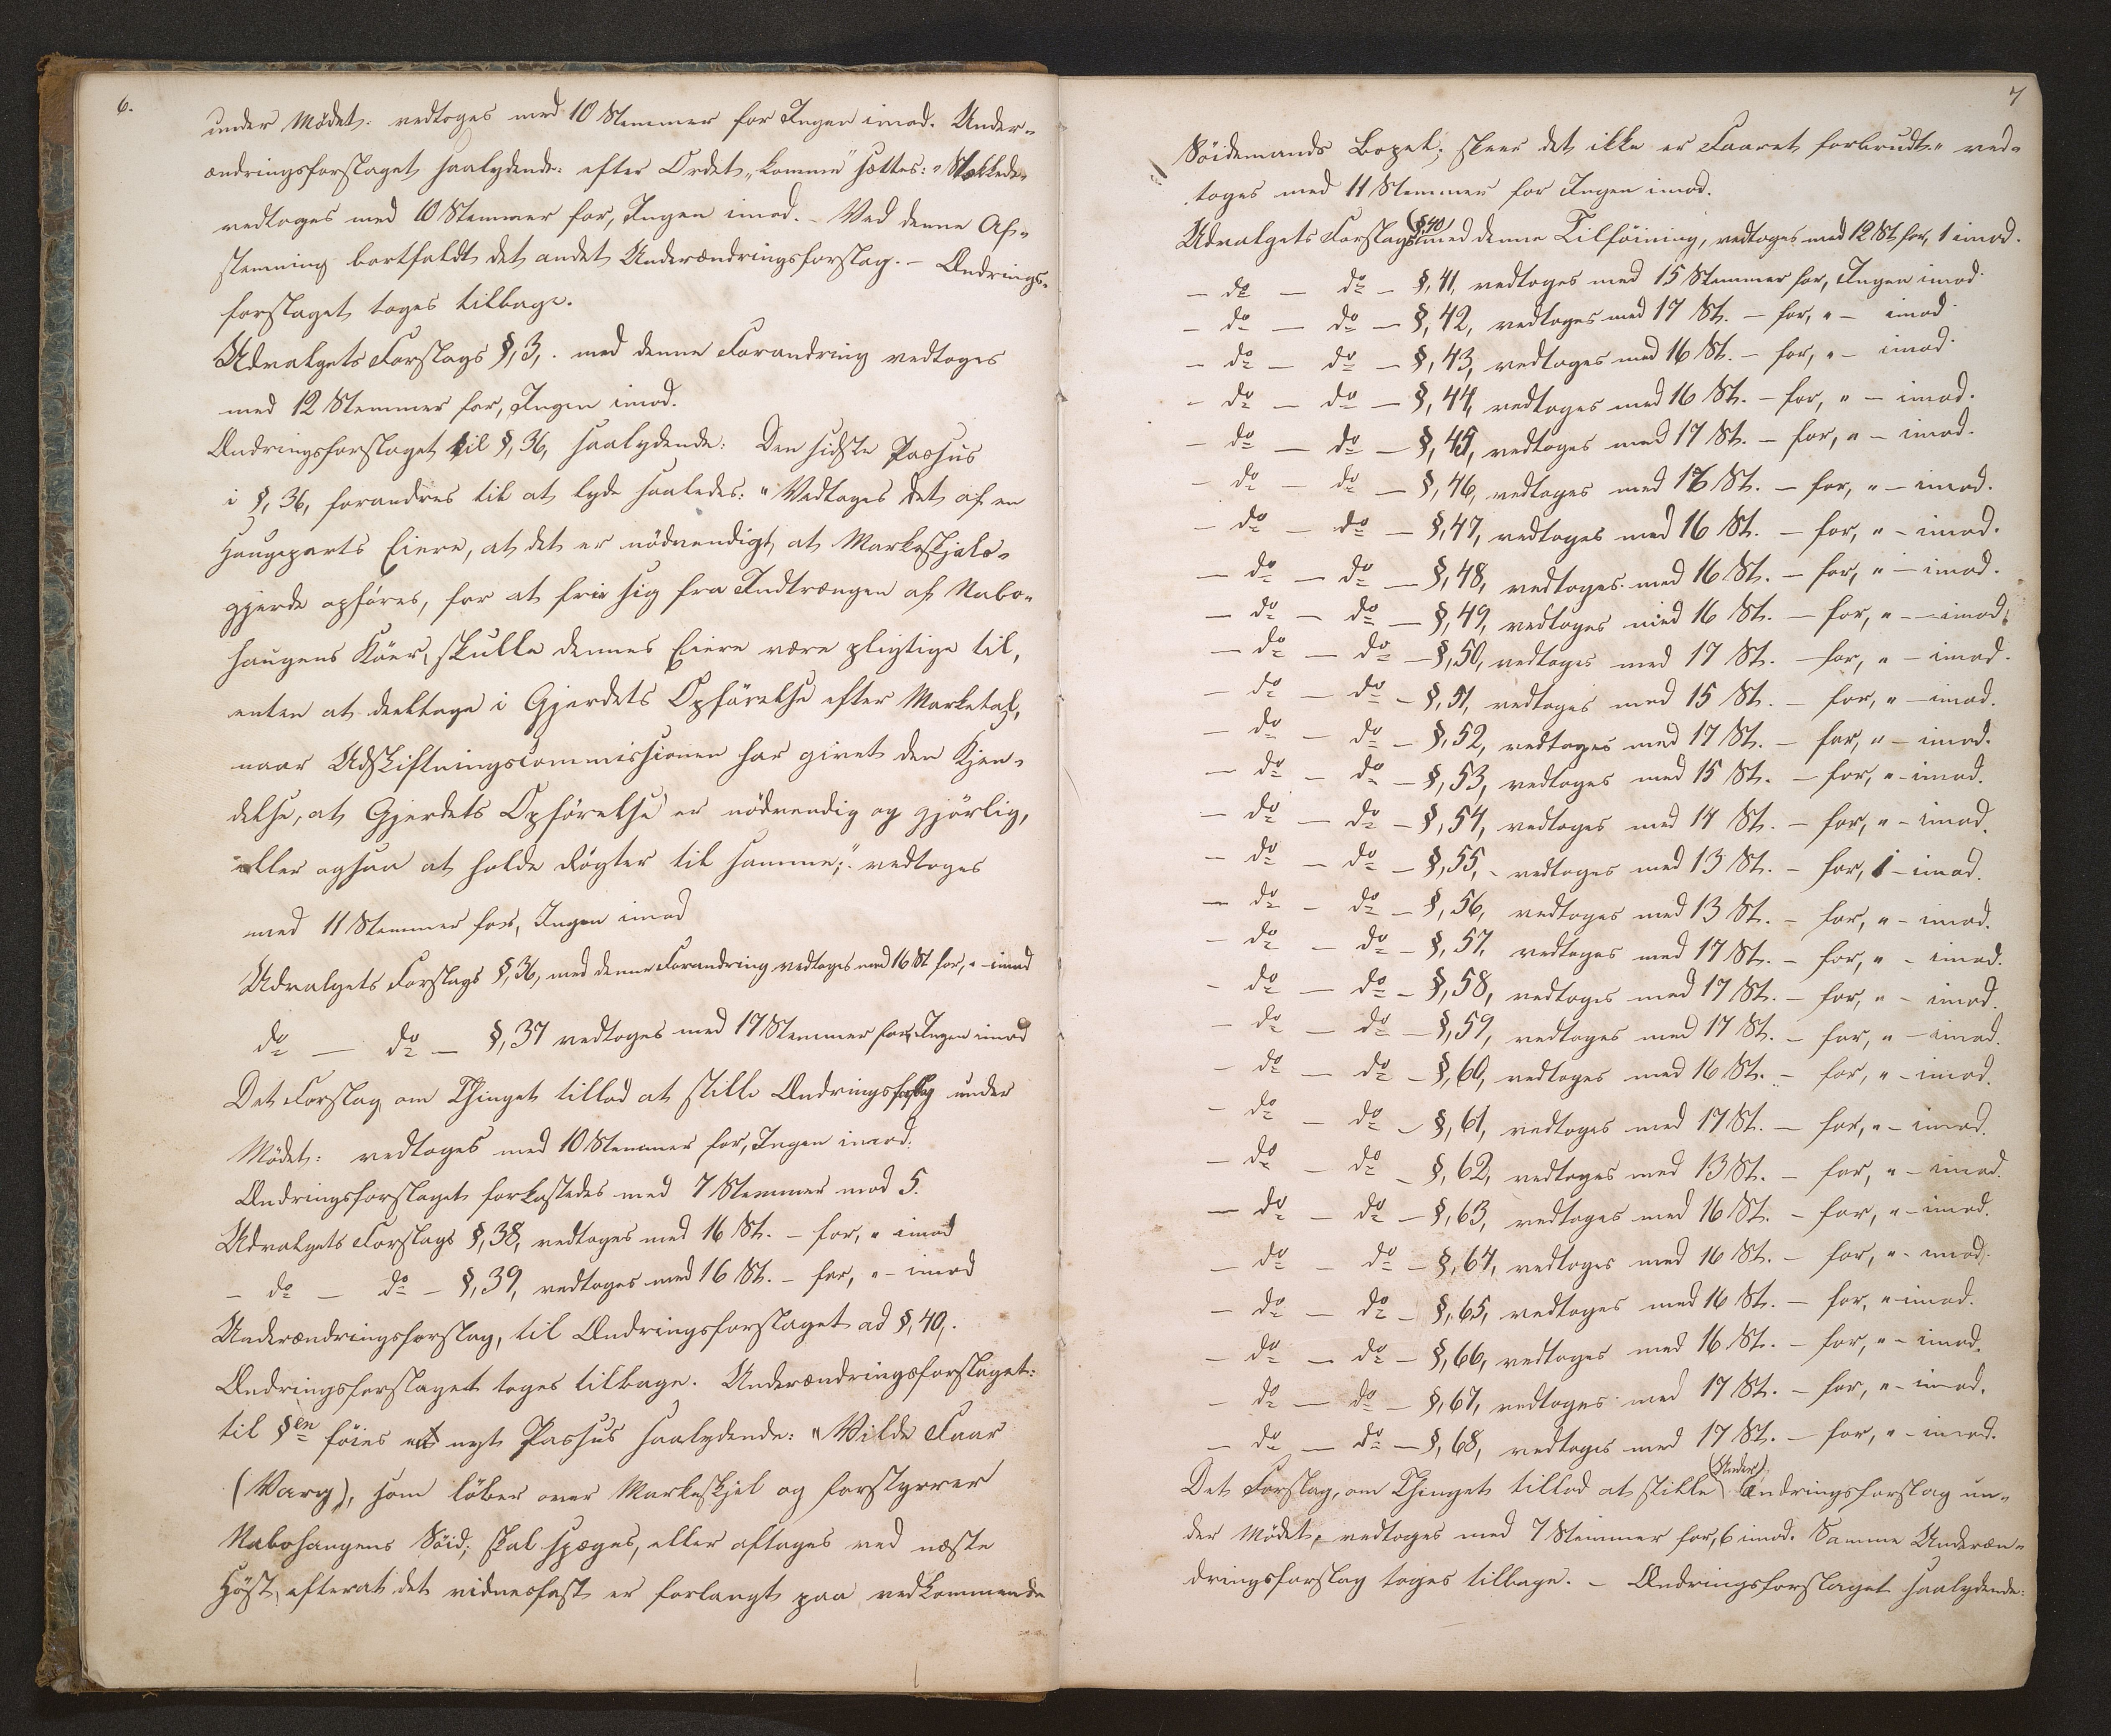 6.
under Mødet: vedtoges med 10 Stemmer for Ingen imod. Under-
ændringsforslaget saalydende: efter Ordet „komme“ sættes: „Stækkede“
vedtoges med 10 Stemmer for, Ingen imod. – Ved denne Af-
stemning bortfaldt det andet Underændringsforslag. – Ændrings-
forslaget toges tilbage.
Udvalgets Forslags §, 3, . med denne Forandring vedtoges
med 12 Stemmer for, Ingen imod.
Ændringsforslaget til §, 36, saalydende: Den sidste Passus
i §, 36, forandres til at lyde saaledes: „Vedtages det af en
Haugeparts Eiere, at det er nödvendigt, at Markeskjels-
gjerde opføres, for at frie sig fra Indtrængen af Nabo-
haugens Köer, skulle dennes Eiere være pligtige til,
enten at deeltage i Gjerdets Opförelse efter Marketal,
naar Udskiftningscommissionen har givet den Kjen-
delse, at Gjerdets Opförelse er nödvendig og gjörlig,
eller ogsaa at holde Røgter til samme;“ vedtoges
med 11 Stemmer for, Ingen imod
Udvalgets Forslags §, 36, med denne Forandring vedtoges med 16 St. for, „ – imod
do – do – §, 37 vedtoges med 17 Stemmer for, Ingen imod
Det Forslag, om Thinget tillod at stille Ændringsforslag under
Mödet: vedtoges med 10 Stemmer for, Ingen imod.
Ændringsforslaget forkastedes med 7 Stemmer mod 5.
Udvalgets Forslags §, 38, vedtoges med 16 St. – for, „ imod
– do – do – §, 39, vedtoges med 16 St. – for, „ – imod
Underændringsforslag, til Ændringsforslaget ad §, 40,.
Ændringsforslaget toges tilbage. Underændringsforslaget:
til §en föies et nyt Passus saalydende: „Vilde Faar
(Varg), som löber over Markeskjel og forstyrrer
Nabohaugens Söid; skal spæges, eller aftages ved næste
Höst, efterat det vidnesfast er forlangt paa vedkommende
7
Söidemands Bopæl; skeer det ikke er Faaret forbrudt.“ ved-
toges med 11 Stemmer for Ingen imod.
Udvalgets Forslags (§40) med denne Tilföining, vedtoges med 12 St. for, 1 imod.
– do – do – §, 41, vedtoges med 15 Stemmer for, Ingen imod
– do – do – §, 42, vedtoges med 17 St. – for, „ – imod
– do – do – §, 43, vedtoges med 16 St. – for, „ – imod.
– do – do – §, 44, vedtoges med 16 St. – for, „ – imod.
– do – do – §, 45, vedtoges med 17 St. – for, „ – imod.
– do – do – §, 46, vedtoges med 16 St. – for, „ – imod.
– do – do – §, 47, vedtoges med 16 St. – for, „ – imod.
– do – do – §, 48, vedtoges med 16 St. – for, „ – imod.
– do – do – §, 49, vedtoges med 16 St. – for, „ – imod.
– do – do – §, 50, vedtoges med 17 St. – for, „ – imod.
– do – do – §, 51, vedtoges med 15 St. – for, „ – imod.
– do – do – §, 52, vedtoges med 17 St. – for, „ – imod.
– do – do – §, 53, vedtoges med 15 St. – for, „ – imod.
– do – do – §, 54, vedtoges med 14 St. – for, „ – imod.
– do – do – §, 55, – vedtoges med 13 St. – for, 1 – imod.
– do – do – §, 56, vedtoges med 13 St. – for, „ – imod.
– do – do – §, 57, vedtoges med 17 St. – for, „ – imod.
– do – do – §, 58, vedtoges med 17 St. – for, „ – imod.
– do – do – §, 59, vedtoges med 17 St. – for, „ – imod.
– do – do – §, 60, vedtoges med 16 St. – for, „ – imod.
– do – do – §, 61, vedtoges med 17 St. – for, „ – imod.
– do – do – §, 62, vedtoges med 13 St. – for, „ – imod.
– do – do – §, 63, vedtoges med 16 St. – for, „ – imod.
– do – do – §, 64, vedtoges med 16 St. – for, „ – imod.
– do – do – §, 65, vedtoges med 16 St. – for, „ – imod.
– do – do – §, 66, vedtoges med 16 St. – for, „ – imod.
– do – do – §, 67, vedtoges med 17 St. – for, „ – imod.
– do – do – §, 68, vedtoges med 17 St. – for, „ – imod.
Det Forslag, om Thinget tillod at stille (Under) Ændringsforslag un-
der Mødet, vedtoges med 7 Stemmer for, 6 imod. Samme Underæn-
dringsforslag toges tilbage. – Ændringsforslaget saalydende: